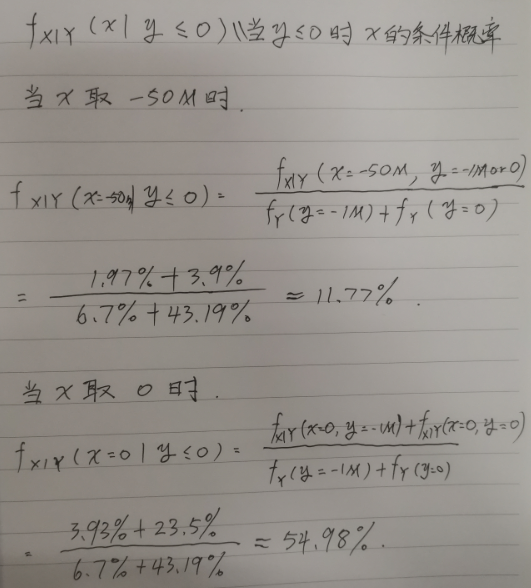 f_{X|Y} (x | y ≤ 0) \\ 当 y ≤ 0 时 x 的条件概率
当 x 取 -50M 时.
f_{X|Y} (x=-50M | y ≤ 0) = \frac{f_{X|Y} (x=-50M, y=-1M or 0)}{f_Y (y=-1M) + f_Y (y=0)}
= \frac{1.97% + 3.9%}{6.7% + 43.19%} ≈ 11.77% .
当 x 取 0 时.
f_{X|Y} (x=0 | y ≤ 0) = \frac{f_{X|Y} (x=0, y=-1M) + f_{X|Y} (x=0, y=0)}{f_Y (y=-1M) + f_Y (y=0)}
= \frac{3.93% + 23.5%}{6.7% + 43.19%} ≈ 54.98% .